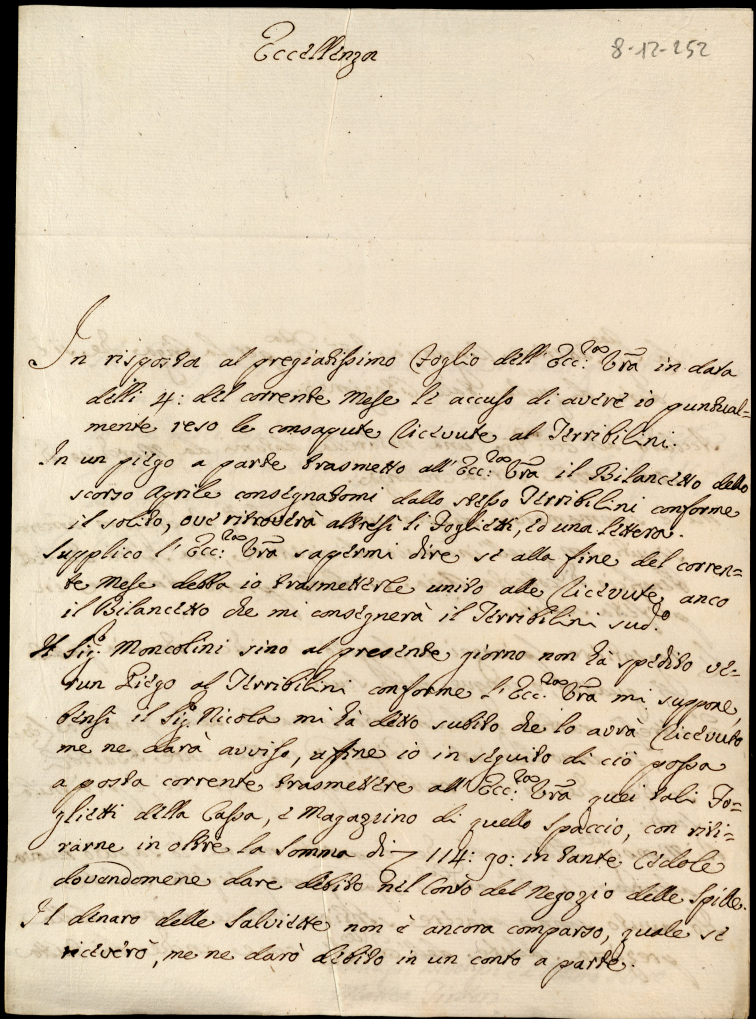 Eccellenza
8-12-252
In risposta al pregiatissimo Foglio dell'Ecc:za Vra in data
delli 4: del corrente Mese le accuso di avere io puntual=
mente reso le consapute Ricevute al Terribilini.
In un piego a parte trasmetto all'Ecc:za Vra il Bilancetto dello
scorso Aprile consegnatomi dallo stesso Terribilini conforme
il solito, ove ritroverà altresì li Foglietti, ed una lettera.
Supplico l'Ecc:za Vra sapermi dire se alla fine del corren=
te Mese debba io trasmetterle unito alle Ricevute anco
il Bilancetto che mi consegnerà il Terribilini sud.o
Il Sig.r Moncolini sino al presente giorno non hà spedito ve=
run Piego al Terribilini conforme l'Ecc:za Vra mi suppone,
bensì il Sig.r Nicola mi hà detto subito che lo avrà Ricevuto
me ne darà avviso, affine io in seguito di ciò possa
a posta corrente trasmettere all'Ecc:za Vra quei tali Fo=
glietti della Cassa, e Magazzino di quello spaccio, con riti=
rarne in oltre la somma di 114: 90: in tante Cedole
dovendomene dare debito nel Conto del Negozio delle Spille.
Il denaro delle Salviette non è ancora comparso, quale se
riceverò, me ne darò debito in un conto a parte.